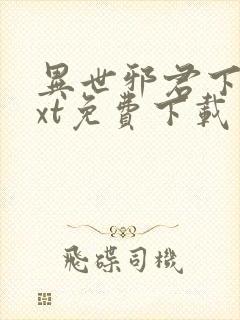 異世邪君下
xt免費下載
飛碟司機